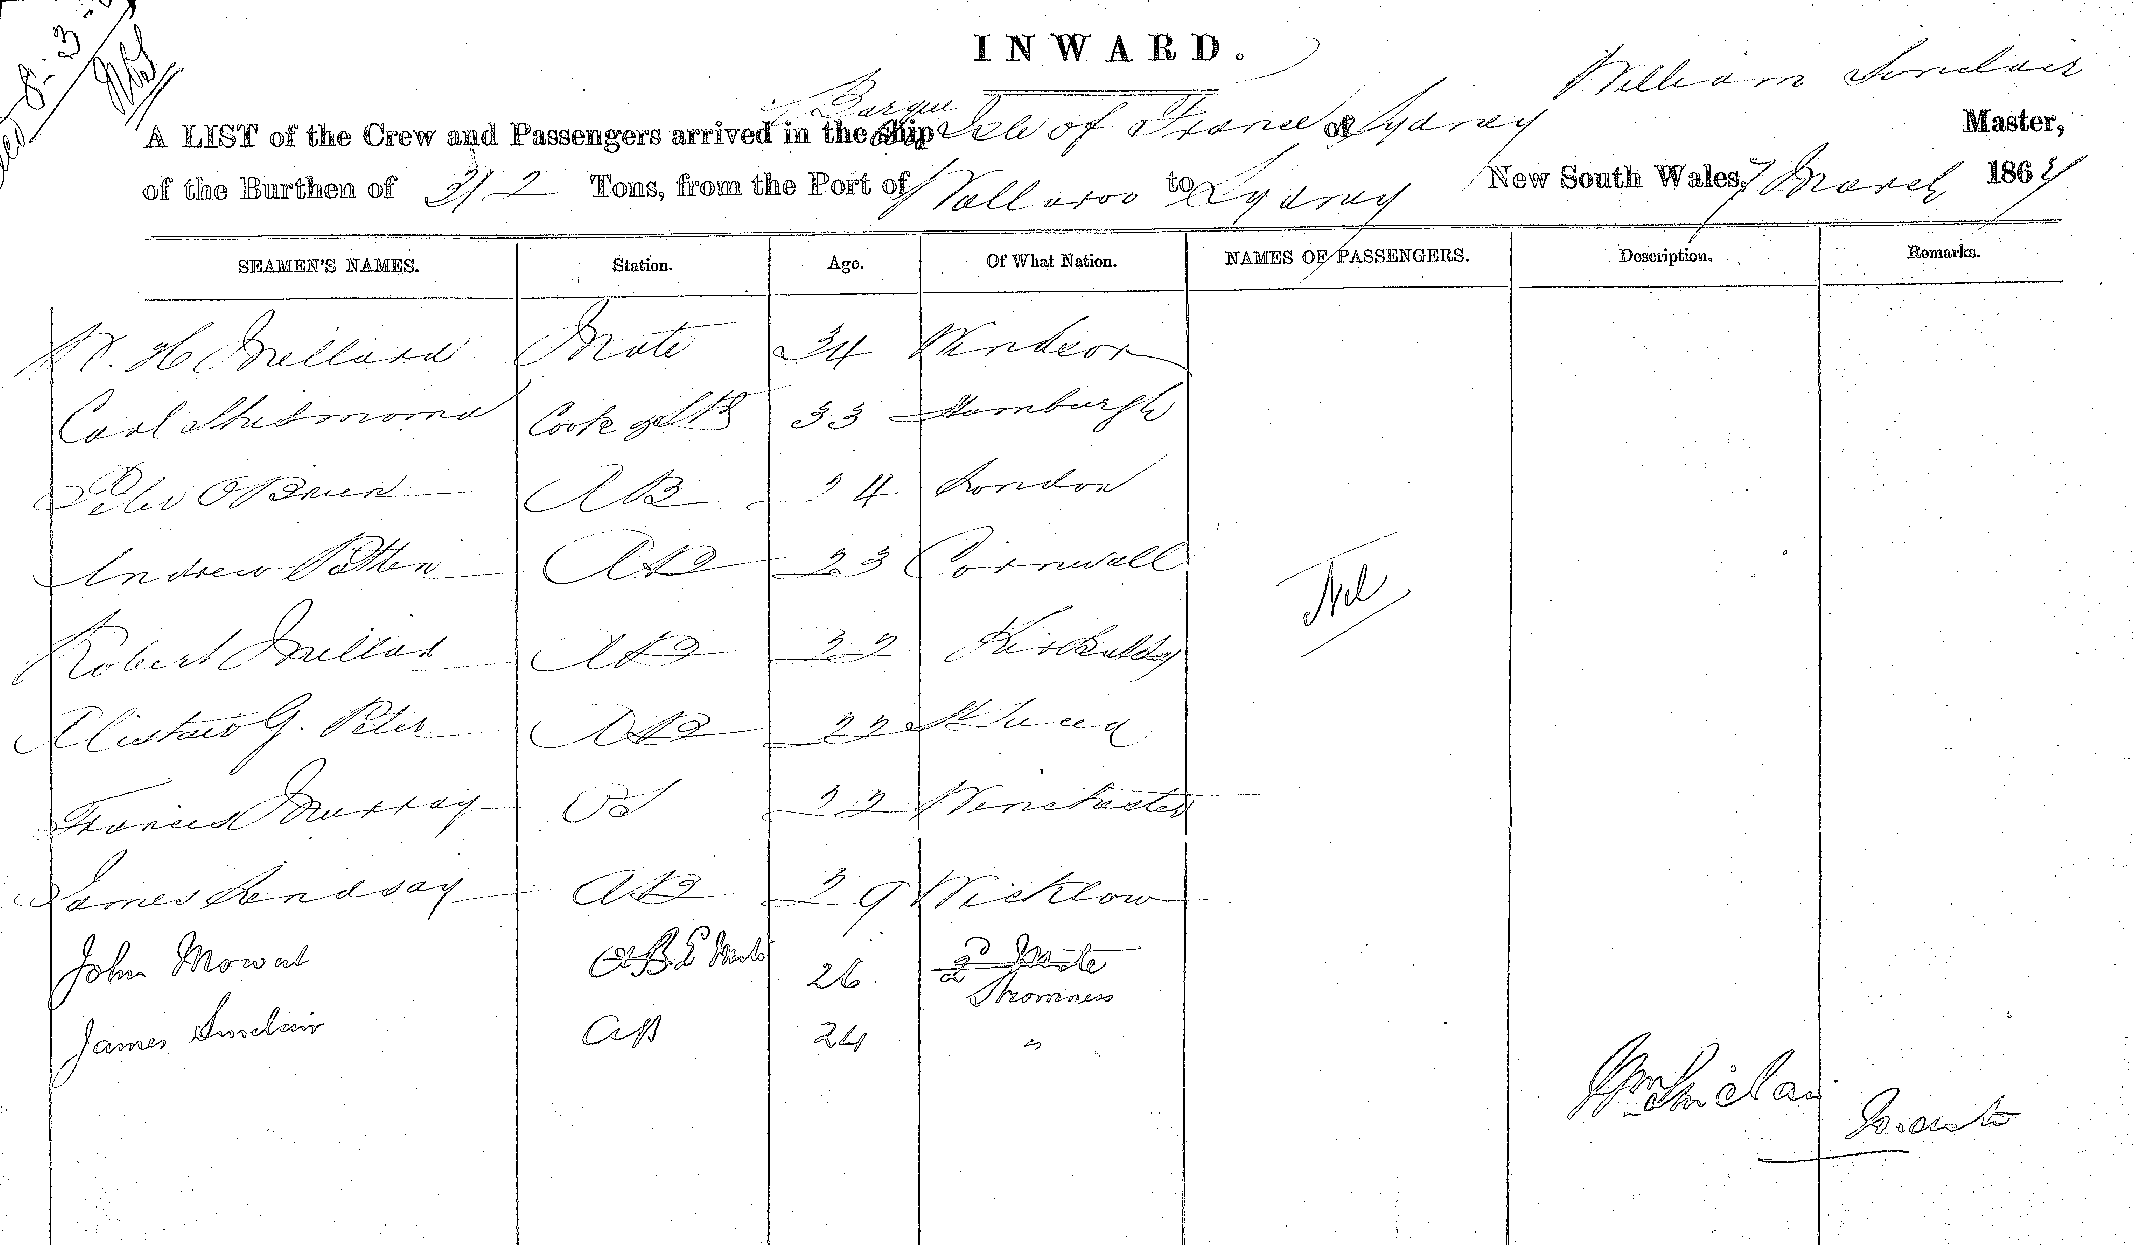 INWARD.
Barque William Sinclair
A LIST of the Crew and Passengers arrived in the ship Isle of France of Sydney Master,
of the Burthen of 312 Tons, from the Port of Wallaroo to Sydney New South Wales, 7 March 1864
SEAMEN'S NAMES. Station. Age. Of What Nation. NAMES OF PASSENGERS. Description. Remarks.
W. H Millard Mate 34 Windsor
Carl Cook & Std 33 Hamburgh
Peter OBrien AB 24 London
Andrew Patten AB 23 Cornwall
Nil
Robert Millar AB 22 Kirkaldy
G. Peter AB 22
Francis Murray OS 22 Winchester
James Lindsay AB 29 Wicklow
John Mowat AB & Mate 26 2d Mate
Stromness
James Sinclair AB 24 "
Wm Sinclair